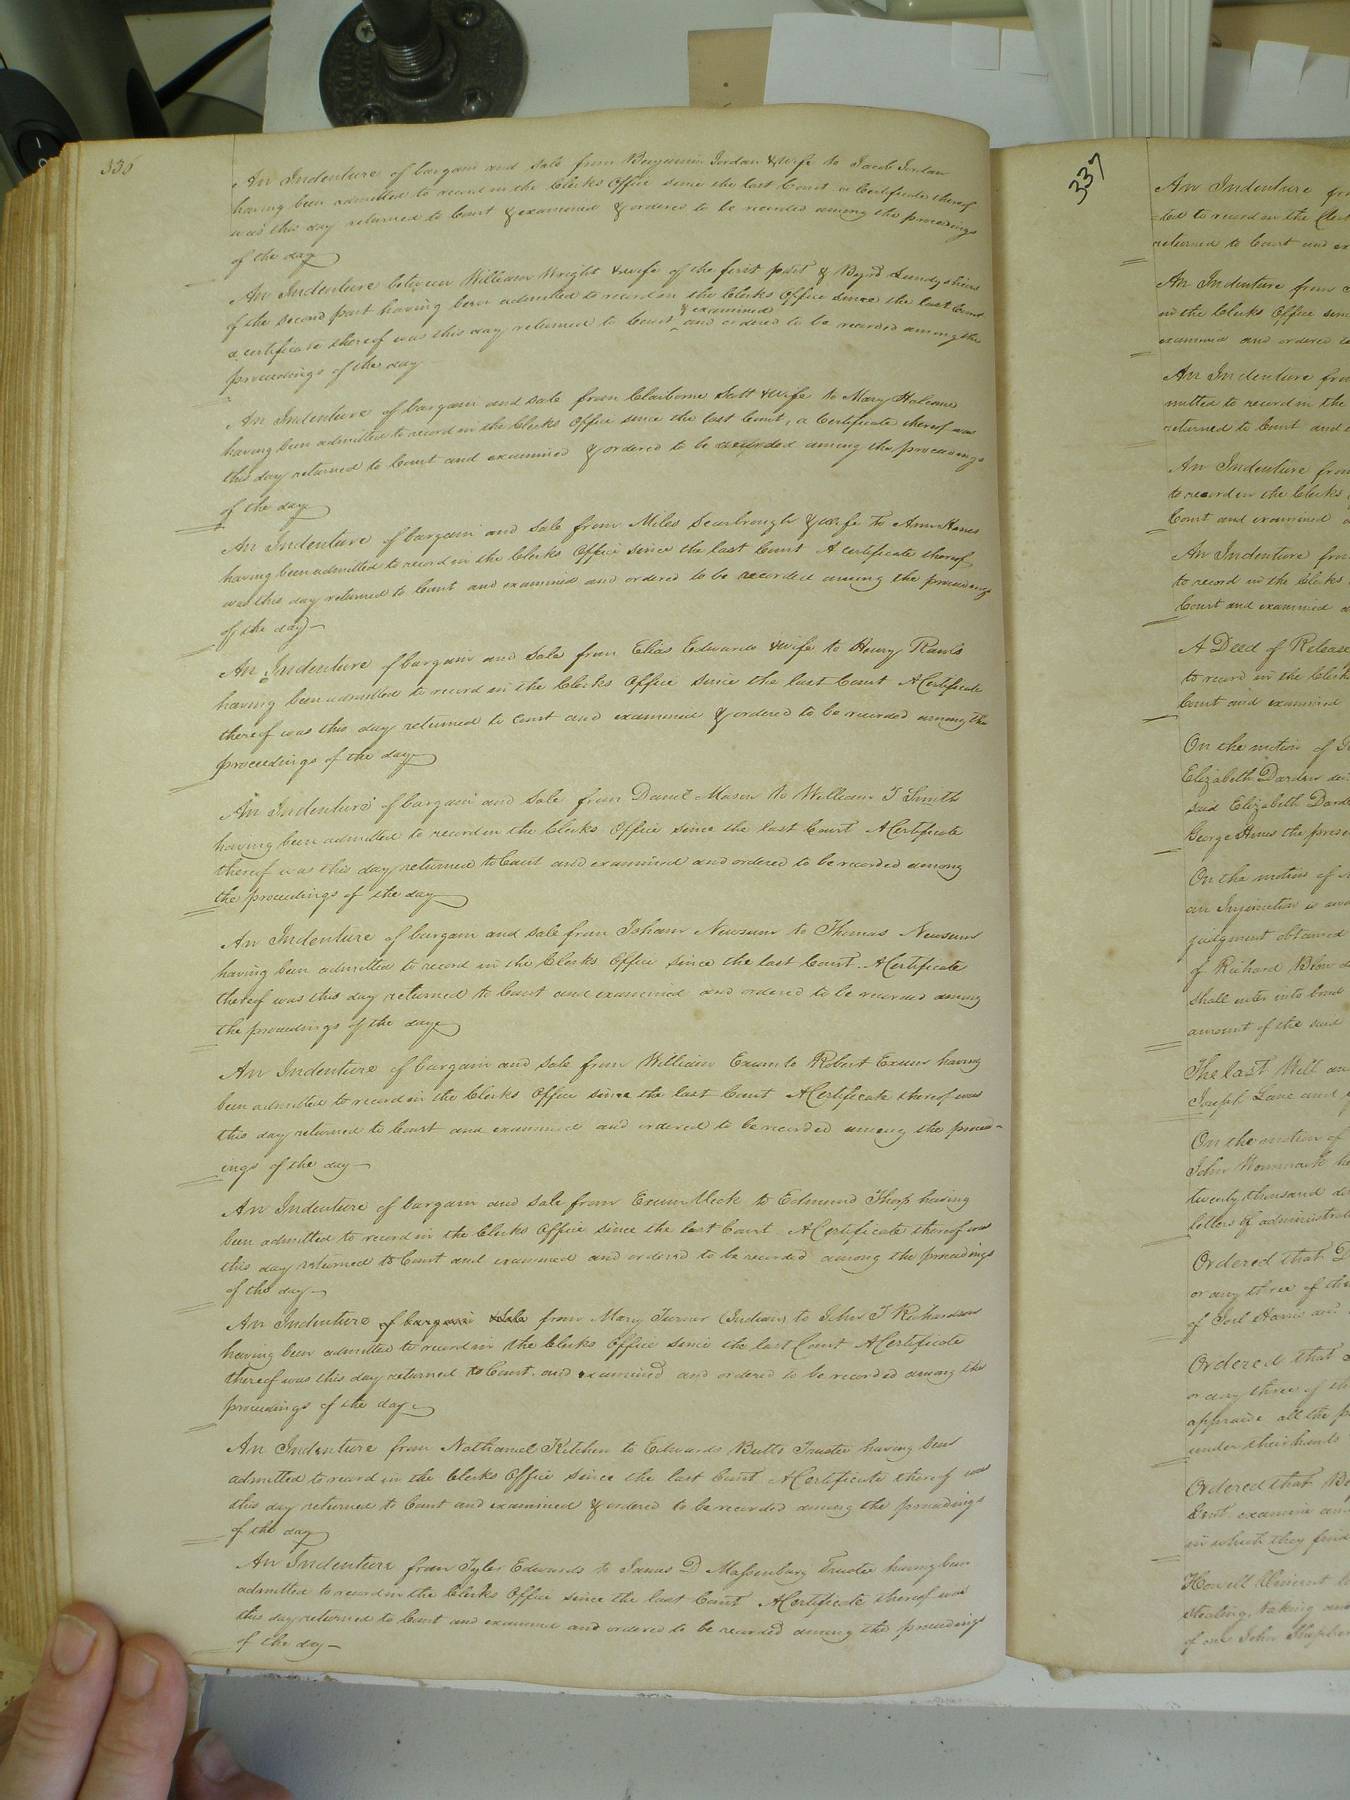 336
An Indenture of bargain and sale from Benjamin Jordan & wife to Jacob Jordan
having been admitted to record in the Clerks Office since the last Court a Certificate thereof
was this day returned to Court & examined & ordered to be recorded among the proceedings
of the day
An Indenture between William Wright & wife of the first part & Byrd Lundy
of the second part having been admitted to record in the Clerks Office since the last Court
& examined
a certificate thereof was this day returned to Court and ordered to be recorded among the
proceedings of the day
An Indenture of bargain and sale from Claiborne Scott & wife to Mary Holcome
having been admitted to record in the Clerks Office since the last Court, a Certificate thereof was
this day returned to Court and examined & ordered to be recorded among the proceedings
of the day
An Indenture of bargain and sale from Miles Scarbrough & wife to Ann
having been admitted to record in the Clerks Office since the last Court A certificate thereof
was this day returned to Court and examined and ordered to be recorded among the proceedings
of the day
An Indenture of bargain and sale from Elias Edwards & wife to Henry Rawls
having been admitted to record in the Clerks Office since the last Court A Certificate
thereof was this day returned to Court and examined & ordered to be recorded among the
proceedings of the day
An Indenture of bargain and sale from Daniel Mason to William T Smith
having been admitted to record in the Clerks Office since the last Court A Certificate
thereof was this day returned to Court and examined and ordered to be recorded among
the proceedings of the day
An Indenture of bargain and sale from Isham Newsum to Thomas Newsum
having been admitted to record in the Clerks Office since the last Court. A Certificate
thereof was this day returned to Court and examined and ordered to be recorded among
the proceedings of the day
An Indenture of bargain and sale from William Exum to Robert Exum having
been admitted to record in the Clerks Office since the last Court A Certificate thereof was
this day returned to Court and examined and ordered to be recorded among the proceed-
ings of the day
An Indenture of bargain and sale from Exum to Edmund Thorp having
been admitted to record in the Clerks Office since the last Court A Certificate thereof was
this day returned to Court and examined and ordered to be recorded among the proceedings
of the day
An Indenture of bargain & sale from Mary Turner (Indian) to John T Richardson
having been admitted to record in the Clerks Office since the last Court A Certificate
thereof was this day returned to Court and examined and ordered to be recorded among the
proceedings of the day
An Indenture from Nathaniel Kitchen to Edwards Butts Trustee having been
admitted to record in the Clerks Office since the last Court A Certificate thereof was
this day returned to Court and examined & ordered to be recorded among the proceedings
of the day
An Indenture from Tyler Edwards to James D Massenburg Trustee having been
admitted to record in the Clerks Office since the last Court A Certificate thereof was
this day returned to Court and examined and ordered to be recorded among the proceedings
of the day
337
An Indenture
-ted to record in the
returned to Court and
An Indenture from
in the Clerks Office
examined and ordered
An Indenture from
mitted to record in the
returned to Court and
An Indenture from
to record in the Clerks
Court and examined
An Indenture from
to record in the Clerks
Court and examined
A Deed of Release
to record in the Clerks
Court and examined
On the motion of
Elizabeth Darden
said Elizabeth
George the
On the motion of
an Injunction is
judgment obtained
of Richard Blow
shall enter into bond
amount of the said
The last Will
Joseph Lane and
On the motion of
John Wommack
twenty thousand
letters of
Ordered that
or any three of the
of Joel Harris
Ordered that
or any three of the
appraise all the
under their hands
Ordered that
Gent. examine
in which they find
Howell Vincent
stealing, taking and
of one John